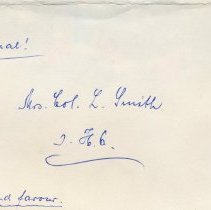 nal!
Mrs. Col. L. Smith
I. H. C.
nd favour.